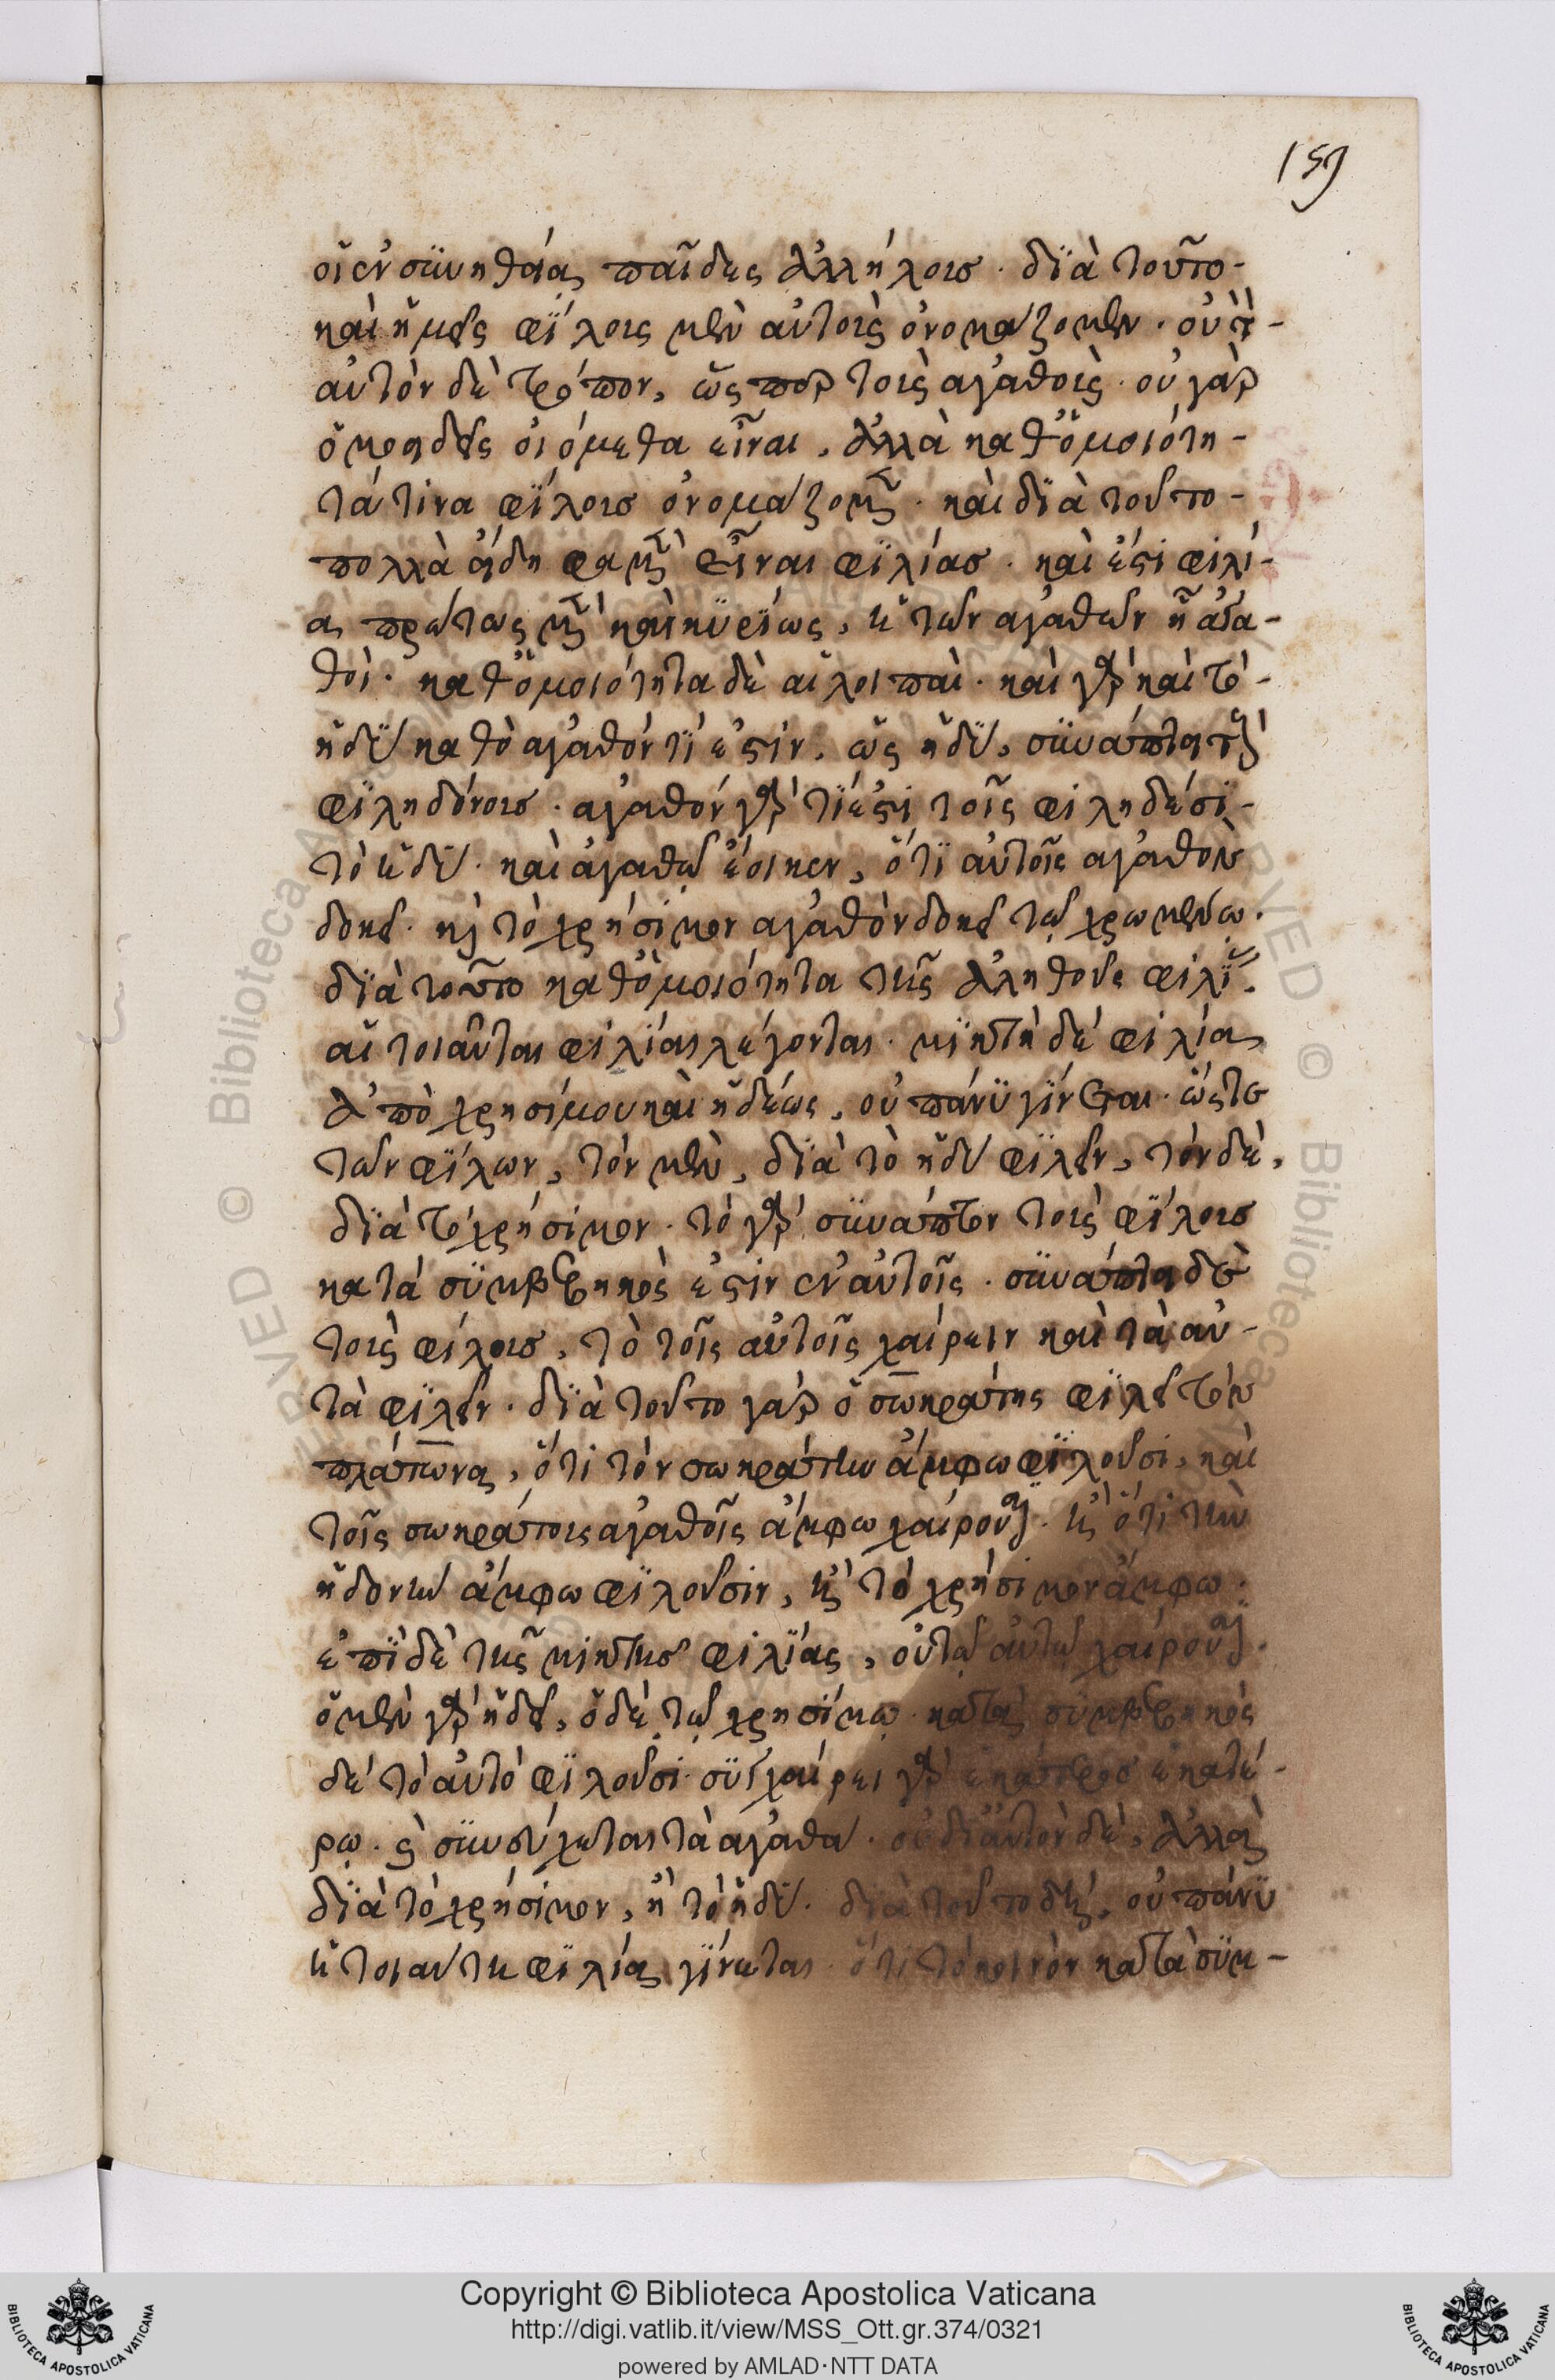 159
οἱ ἐν συνηθεία παῖδες ἀλλήλοισ · δϊὰ τοῦτο-
καὶ ἡμεῖς φΐλους μὲν αὐτοὺς ὀνομάζομεν · οὐ τὸ-
αὐτὸν δὲ τρόπον, ὥς περ τοὺς ἀγαθοὺς · οὐ γὰρ
ὁμοειδεῖς οἰόμεθα εἶναι, ἀλλὰ καθ' ὁμοιότη-
τά τινα φΐλουσ ὀνομάζομεν · καὶ δϊὰ τοῦτο-
πολλὰ εἴδη φαμὲν εἶναι φϊλίασ · καὶ ἔστι φιλί-
α πρώτως μὲν καὶ κυρΐως, ἡ τῶν ἀγαθῶν ᾗ ἀγα-
θοὶ · καθ' ὁμοιότητα δὲ αἱ λοιπαὶ · καὶ γὰρ καὶ τὸ-
ἡδὺ καθὸ ἀγαθόν τΐ ἐστιν, ὡς ἡδὺ, συνάπτει τοὺς
φϊληδόνουσ · ἀγαθόν γὰρ τΐ ἐστι τοῖς φιληδέσϊ-
τὸ ἡδὺ · καὶ ἀγαθῷ ἔοικεν, ὅτϊ αὐτοῖς ἀγαθὸν
δοκεῖ · καὶ τὸ χρήσιμον ἀγαθὸν δοκεῖ τῷ χρωμένω ·
δϊὰ τοῦτο καθ' ὁμοιότητα τῆς ἀληθοῦς φιλΐας ·
αἱ τοιαῦται φιλΐαι λέγονται · μϊκτὴ δὲ φιλία
ἀπὸ χρησίμου καὶ ἡδέως, οὐ πάνϋ γΐνεται · ὥςτε
τῶν φΐλων, τὸν μὲν, δϊὰ τὸ ἡδὺ φϊλεῖν, τὸν δὲ,
δϊὰ τὸ χρήσιμον · τὸ γὰρ συνάπτον τοὺς φΐλουσ
κατὰ συμβεβηκὸς ἐστιν ἐν αὐτοῖς · συνάπτει δὲ
τοὺς φίλουσ, τὸ τοῖς αὐτοῖς χαίρειν καὶ τὰ αὐ-
τὰ φϊλεῖν · δϊὰ τοῦτο γὰρ ὁ σωκράτης φϊλεῖ τὸν
πλάτωνα, ὅτι τὸν σωκράτην ἄμφω φϊλοῦσι, καὶ
τοῖς σωκράτους ἀγαθοῖς ἄμφω χαίρουσϊ · καὶ ὅτι τὴν
ἡδονὴν ἄμφω φϊλοῦσιν, καὶ τὸ χρήσιμον ἄμφω ·
ἐπΐ δὲ τῆς μικτῆσ φιλΐας, οὐ τῷ αὐτῷ χαίρουσϊ ·
ὁ μὲν γὰρ ἡδεῖ, ὁ δὲ τῷ χρησΐμῳ · κατὰ συμβεβηκὸς
δὲ τὸ αὐτὸ φϊλοῦσι · συγχαίρει γὰρ ἑκάτερος ἑκατέ-
ρῳ · καὶ συνεύχεται τὰ ἀγαθὰ · οὐ δι' αὐτὸν δὲ, ἀλλὰ
δϊὰ τὸ χρήσιμον, ἢ τὸ ἡδὺ · δϊὰ τοῦτο δὲ, οὐ πάνϋ
ἡ τοιαύτη φϊλία γΐνεται · ὅτι τὸ κοινὸν κατὰ συμ-
Copyright © Biblioteca Apostolica Vaticana
http://digi.vatlib.it/view/MSS_Ott.gr.374/0321
powered by AMLAD·NTT DATA